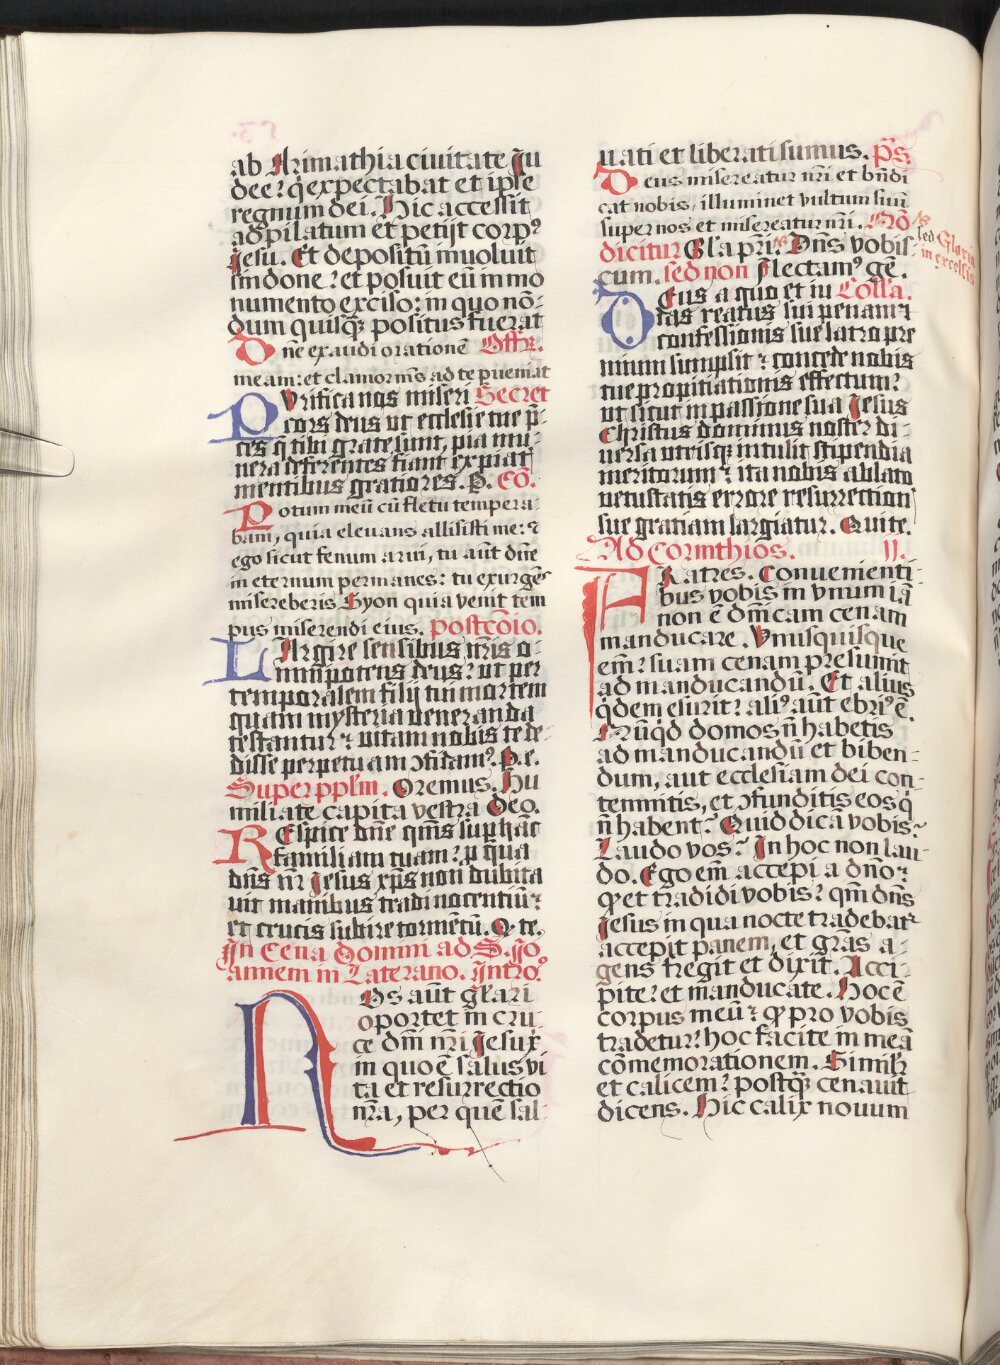 ab Arimathia civitate Iu
dee: q̇ expectabat et ipse
regnum dei. Hic accessit
ad pilatum et petijt corpꝰ
Iesu. Et depositū inuoluit
sindone: et posuit eū in mo
numento exciso: in quo nō-
dum quisq̄ positus fuerat
Dne exaudi orationē Offr̄.
meam: et clamor mīs ad te pueniat
Purifica nos miseri Secret
cors deus ut ecclesie tue p̄-
ces q̄ tibi grate sunt, pia mu-
nera deferentes fiant expiat̄
mentibus gratiores. P. Cō.
Potum meū cū fletu tempera-
bam, quia elevans allisisti me: ⁊
ego sicut fenum arui, tu aūt dn̄e
in eternum permanes: tu exurgēs
misereberis Syon quia venit tem
pus miserendi eius. Postcōio.
Largire sensibus nr̄is o-
mnipotens deus: ut per
temporalem filij tui mortem
quam mysteria veneranda
testantur: vitam nobis te de-
disse perpetuam ꝯfidamꝰ. P. e.
Super pplm̄. Oremus. Hu
miliate capita vestra Deo.
Respice dn̄e q̄ms suphāc
familiam tuam: p qua
dn̄s nr̄ Iesus xp̄s non dubita
vit manibus tradi nocentiū:
et crucis subire tormētū. Q. te.
In Cena Domini ad S. Jo
annem in Laterano. Introꝰ
Nos aūt glari
oportet in cru-
ce dn̄i nr̄i Iesu x̄
in quo ē salus vi
ta et resurrectio
nr̄a, per quē sal-
uati et liberati sumus. Ps̄.
Deus misereatur nr̄i et bn̄di
cat nobis, illuminet vultum suū
super nos et misereatur nr̄i. Nō
dicitur Gl̄a pri. Dn̄s vobis
sed Gloria
in excelsis
cum. sed non Flectamꝰ gē.
Deus a quo et iu Coll̄a.
das reatus sui penam: ⁊
confessionis sue latro pre
mium sumpsit: concede nobis
tue propitiationis effectum:
ut sicut in passione sua Iesus
Christus dominus noster di-
versa utrisq; intulit stipendia
meritorum: ita nobis ablato
vetustatis errore resurrection̄
sue gratiam largiatur. Qui te.
Ad Corinthios. II.
FRatres. Convenienti-
bus vobis in vnum iā
non ē dn̄icam cenam
manducare. Vnusquisque
em̄: suam cenam presumit
ad manducandū. Et alius
q̇dem esurit: aliꝰ aūt ebriꝰ ē.
Nūq̇d domos n̄ habetis
ad manducandū et biben-
dum, aut ecclesiam dei con-
temnitis, et ꝯfunditis eos q̇
n̄ habent? Quid dicā vobis?
Laudo vos? In hoc non lau-
do. Ego em̄ accepi a dn̄o:
qꝫ et tradidi vobis: qm̄ dn̄s
Iesus in qua nocte tradebat̄
accepit panem, et gr̄as a-
gens fregit et dixit. Acci-
pite: et manducate. Hoc ē
corpus meū: qꝫ pro vobis
tradetur: hoc facite in meā
cōmemorationem. Simil̄r
et calicem: postq̄ cenavit
dicens. Hic calix novum